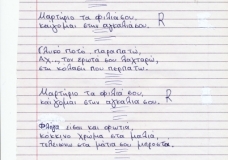 Μαρτύριο τα φιλιά σου,
καίγομαι στην αγκαλιά σου. R
Γλυκό ποτό παραπατώ,
Αχ.., τον έρωτα σου λαχταρώ,
στη κόλαση που περπατώ.
Μαρτύριο τα φιλιά σου,
καίγομαι στην αγκαλιά σου. R
Φλόγα είσαι και φωτιά,
κόκκινο χρώμα στα μαλλιά,
στα μάτα σου